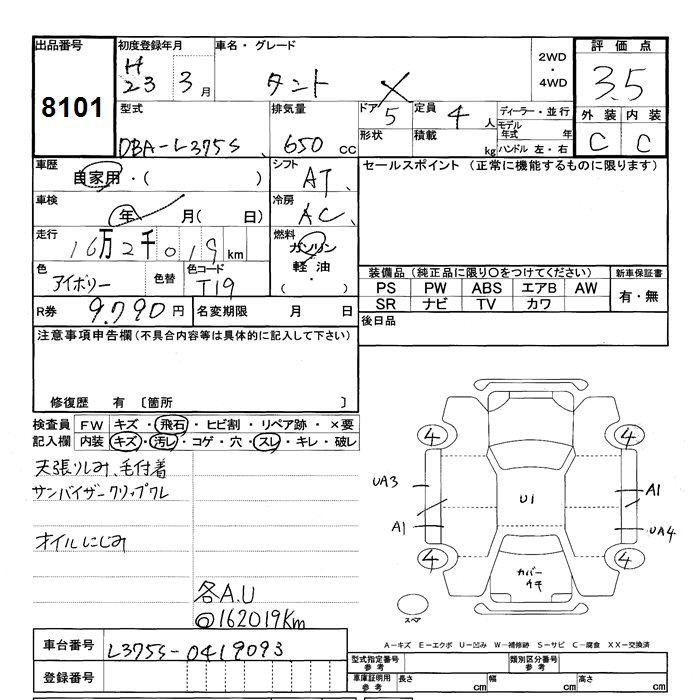 出品番号 初度登録年月 車名・グレード 2WD・4WD 評価点
8101 H23 3月 タント X 3.5
型式 排気量 ドア 5 定員 4人 ディーラー・並行 外装 内装
DBA-L375S 650cc 形状 積載 kg モデル年式 年 C C
ハンドル 左・右
車歴 自家用・( ) シフト AT セールスポイント (正常に機能するものに限ります)
車検 年 月( 日) 冷房 AC
走行 16万2千019km 燃料 ガソリン
軽油・( )
色 アイボリー 色替 色コード T19
装備品 (純正品に限り○をつけてください) 新車保証書
PS PW ABS エアB AW 有・無
SR ナビ TV カワ
R券 9.790円 名変期限 月 日 後日品
注意事項申告欄(不具合内容等は具体的に記入して下さい)
修復歴 有 〔箇所 〕
検査員 FW キズ・飛石・ヒビ割・リペア跡・×要
記入欄 内装 キズ・汚レ・コゲ・穴・スレ・キレ・破レ
天張りしみ、毛付着
サンバイザークリップワレ
オイルにじみ
各A.U
@162019Km
4 4
UA3 U1 A1
A1 UA4
4 カバー 4
スペア
A-キズ E-エクボ U-凹み W-補修跡 S-サビ C-腐食 XX-交換済
車台番号 L375S-0419093
登録番号
型式指定番号 参考 類別区分番号 参考
車庫証明用 参考 長さ cm 幅 cm 高さ cm